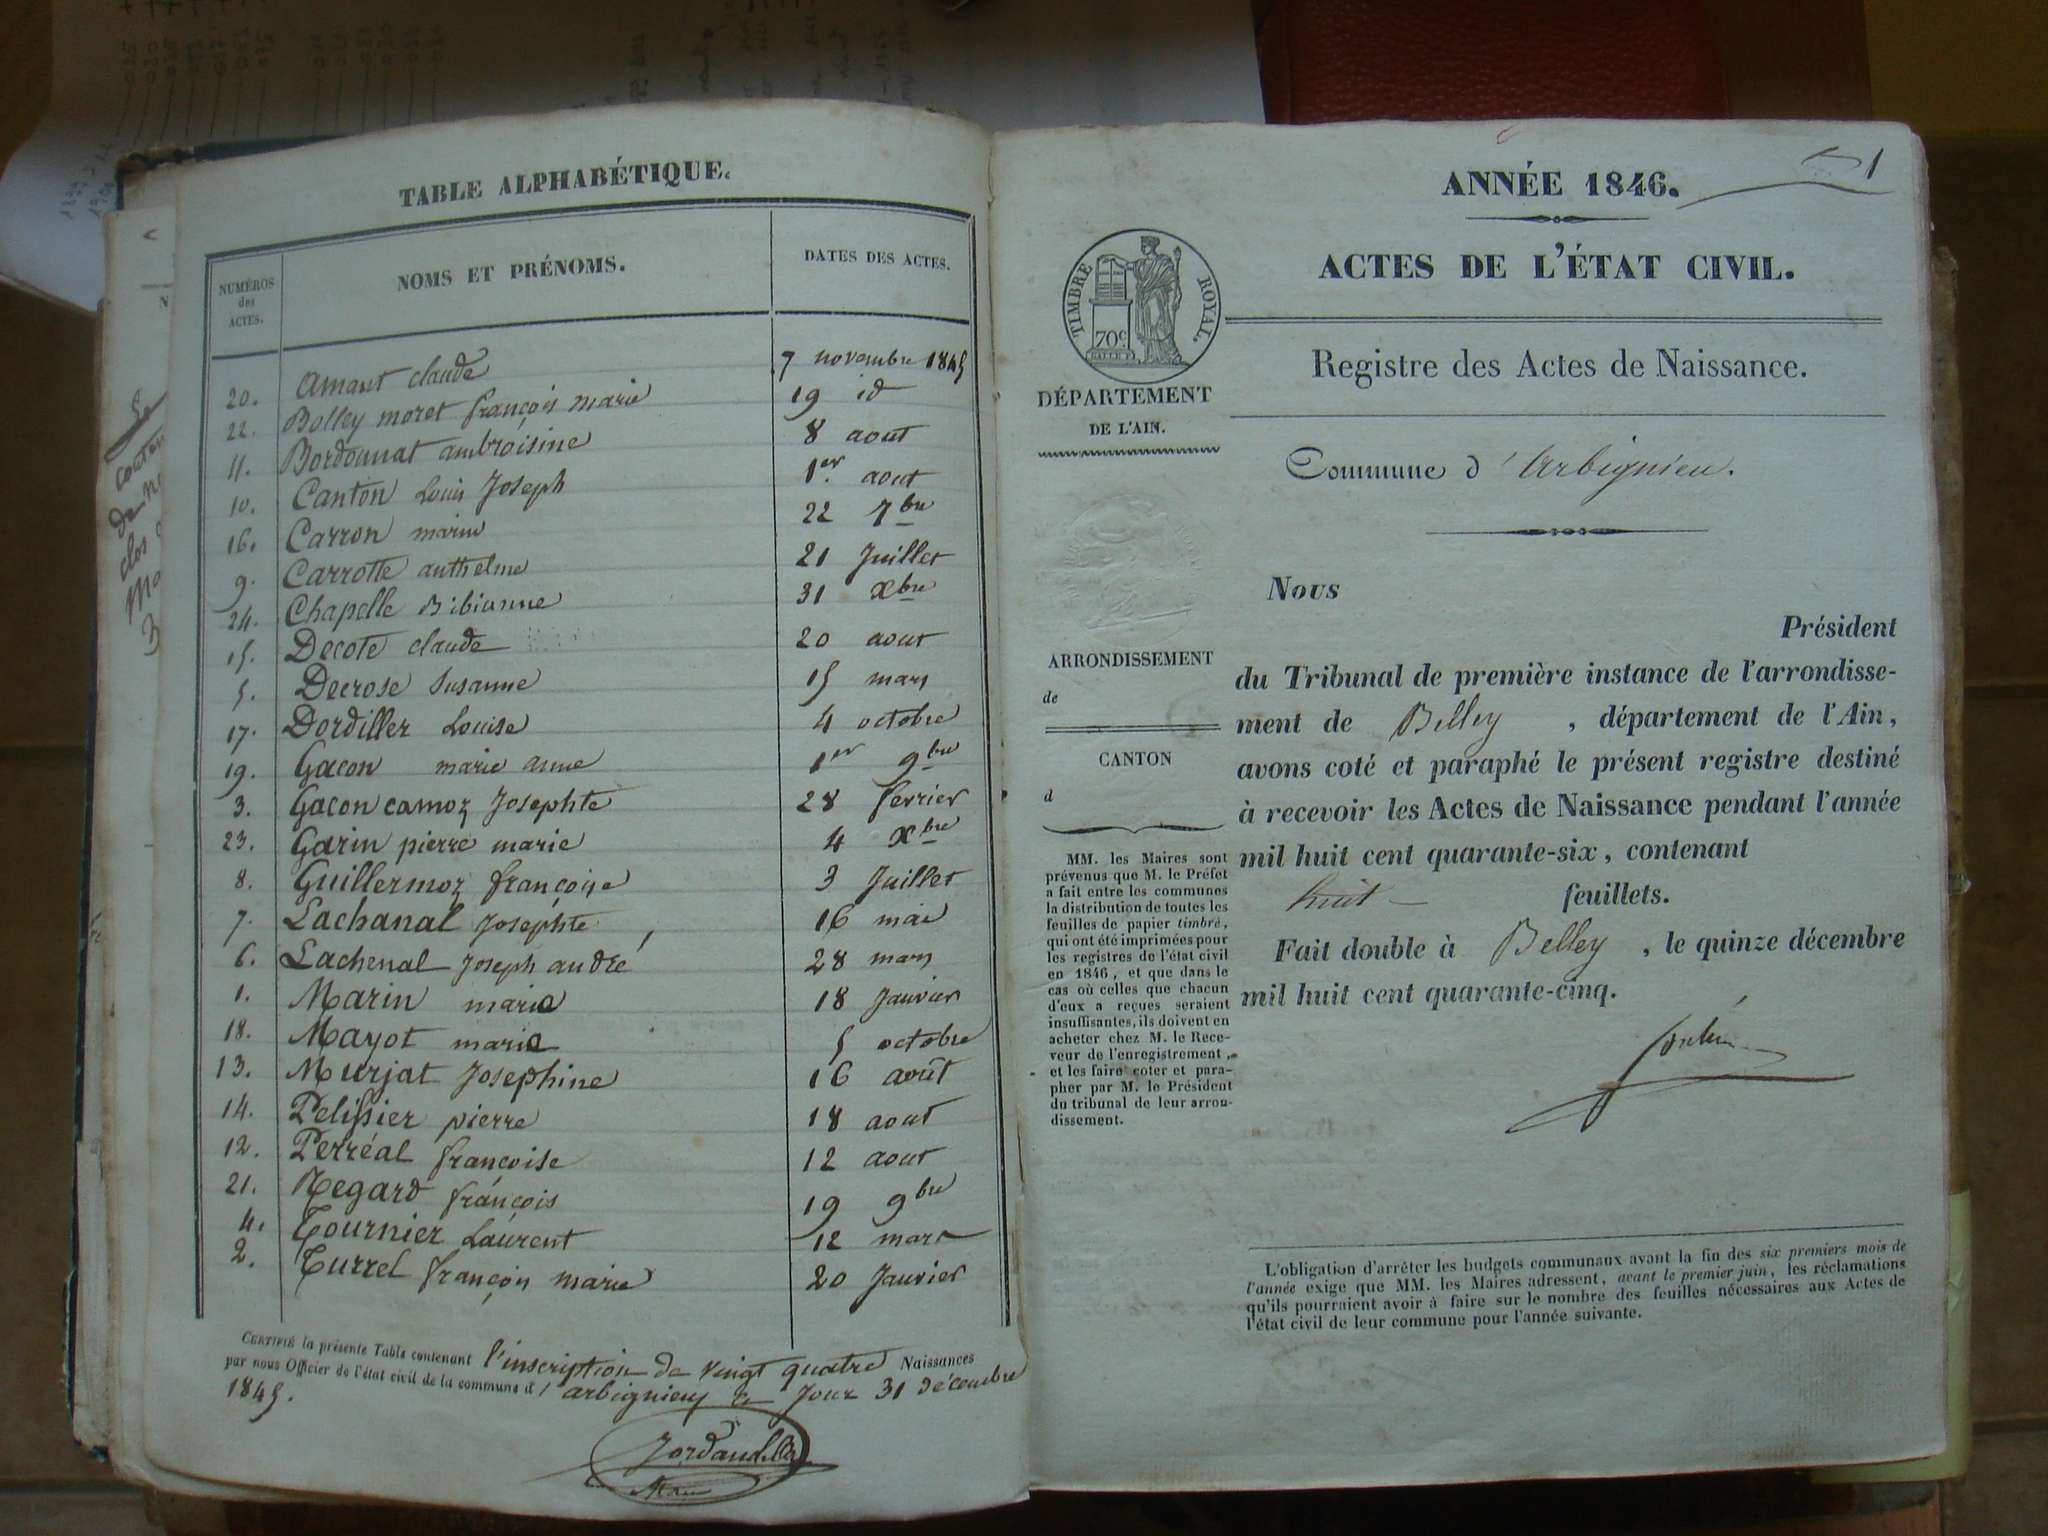 TABLE ALPHABÉTIQUE.
NUMÉROS des ACTES.
NOMS ET PRÉNOMS.
DATES DES ACTES.
20. Amant claude 7 novembre 1845
22. Bolley moret françois marie 19 id
11. Bordonnat ambroisine 8 aout
10. Canton Louis Joseph 1er aout
16. Carron marie 22 7bre
9. Carrotte anthelme 21 Juillet
24. Chapelle Bibianne 31 Xbre
15. Decote claude 20 aout
5. Decrose Susanne 15 mars
17. Dordiller Louise 4 octobre
19. Gacon marie anne 1er 9bre
3. Gacon camoz Josephte 28 fevrier
23. Garin pierre marie 4 Xbre
8. Guillermoz françoise 3 Juillet
7. Lachanal Josephte 16 mai
6. Lachenal Joseph andré 28 mars
1. Marin maria 18 Janvier
18. Mayot maria 5 octobre
13. Murjat Josephine 16 août
14. Pelissier pierre 18 aout
12. Perréal francoise 12 aout
21. Regard françois 19 9bre
4. Tournier Laurent 12 mars
2. Turrel françois marie 20 Janvier
CERTIFIÉ la présente Table contenant l'inscription de vingt quatre Naissances
par nous Officier de l'état civil de la commune d'arbignieu ce Jour 31 décembre
1845.
ANNÉE 1846.
1
ACTES DE L'ÉTAT CIVIL.
TIMBRE ROYAL.
70c
DÉPARTEMENT
DE L'AIN.
Registre des Actes de Naissance.
Commune d'Arbignieu.
Nous
Président
du Tribunal de première instance de l'arrondisse-
ment de Belley, département de l'Ain,
avons coté et paraphé le présent registre destiné
à recevoir les Actes de Naissance pendant l'année
mil huit cent quarante-six, contenant
huit feuillets.
Fait double à Belley, le quinze décembre
mil huit cent quarante-cinq.
ARRONDISSEMENT
de
CANTON
d
MM. les Maires sont
prévenus que M. le Préfet
a fait entre les communes
la distribution de toutes les
feuilles de papier timbré,
qui ont été imprimées pour
les registres de l'état civil
en 1846, et que dans le
cas où celles que chacun
d'eux a reçues seraient
insuffisantes, ils doivent en
acheter chez M. le Rece-
veur de l'enregistrement,
et les faire coter et para-
pher par M. le Président
du tribunal de leur arron-
dissement.
L'obligation d'arrêter les budgets communaux avant la fin des six premiers mois de
l'année exige que MM. les Maires adressent, avant le premier juin, les réclamations
qu'ils pourraient avoir à faire sur le nombre des feuilles nécessaires aux Actes de
l'état civil de leur commune pour l'année suivante.